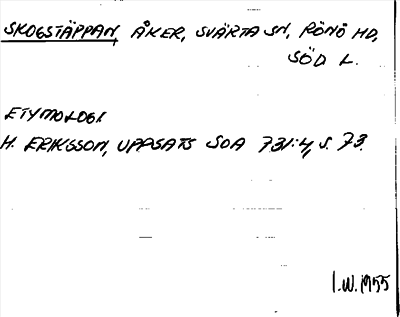 SKOGSTÄPPAN, ÅKER, SVÄRTA SN, RÖNÖ HD,
SÖD L.
ETYMOLOGI
H. ERIKSSON, UPPSATS SOA 731:4, S. 73.
I.W. 1955